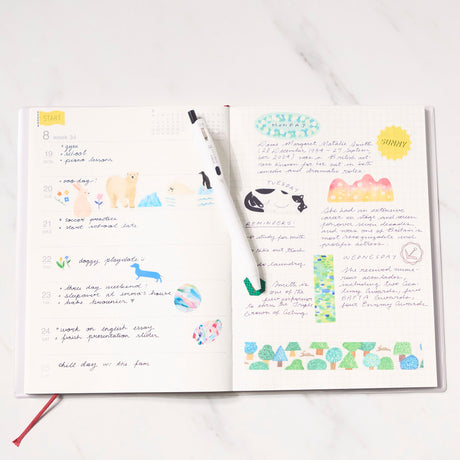 START
8 week 34
19
• gym
• school
• piano lesson
20
• zoo day!
21
• soccer practice
• start journal late
22
doggy playdate :)
23
• three day weekend!
• sleepover at emma's house
24
• work on english essay
• finish presentation slides
25
chill day w/ the fam
MONDAY
Dame Margaret Natalie Smith
(28 December 1934 - 27 Septem-
ber 2024) was a British act-
ress known for her wit in both
comedic and dramatic roles.
SUNNY
TUESDAY
She had an extensive
career on stage and screen
for over seven decades,
and was one of Britain's
most recognisable and
prolific actresses.
REMINDERS:
study for math
take out trash
do laundry
WEDNESDAY
She received nume-
rous accolades,
including two Aca-
demy Awards, five
BAFTA Awards,
four Emmy Awards,
Smith is
one of the
few performers
to earn the Triple
Crown of Acting.